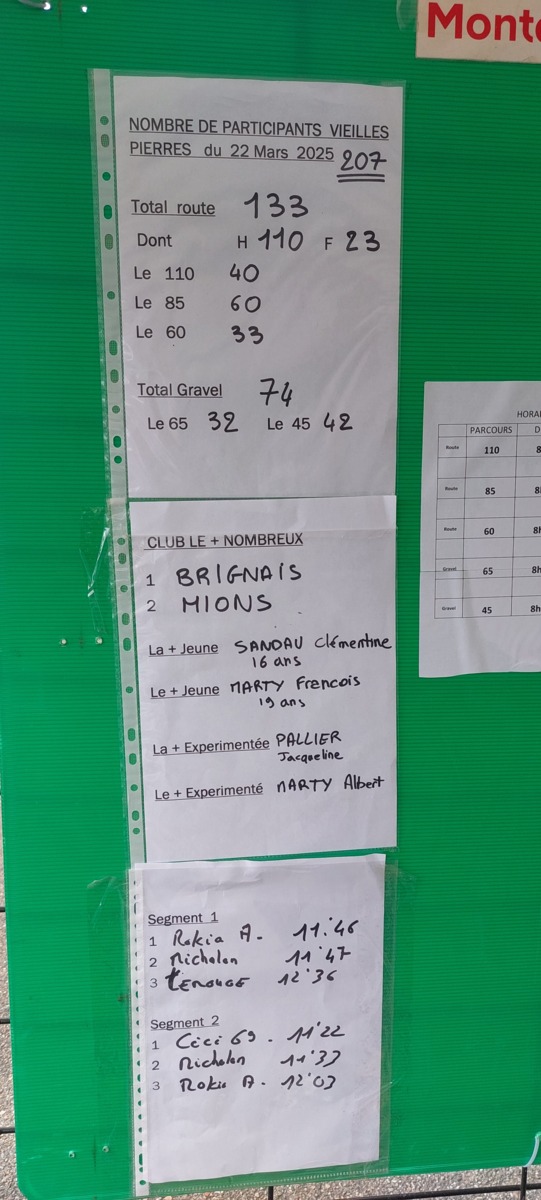 Mont
NOMBRE DE PARTICIPANTS VIEILLES
PIERRES du 22 Mars 2025 207
Total route 133
Dont H 110 F 23
Le 110 40
Le 85 60
Le 60 33
Total Gravel 74
Le 65 32 Le 45 42
CLUB LE + NOMBREUX
1 BRIGNAIS
2 MIONS
La + Jeune SANDAU Clémentine
16 ans
Le + Jeune MARTY Francois
19 ans
La + Experimentée PALLIER
Jacqueline
Le + Experimenté MARTY Albert
Segment 1
1 Rokia A. 11'46
2 Nicholon 11'47
3 12'36
Segment 2
1 Cici 69. 11'22
2 Nicholon
3 Rokia A. 12'03
HORAI
PARCOURS D
Route 110 8
Route 85 8
Route 60 8h
Gravel 65 8h
Gravel 45 8h